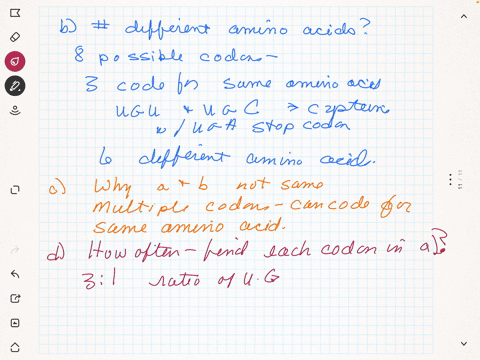 b) # different amino acids?
8 possible codons -
3 code for same amino acid
UGU + UGC → cysteine
w/ UGA stop codon
6 different amino acid.
c) Why a + b not same
Multiple codons - can code for
same amino acid.
d) How often - find each codon in a)?
3:1 ratio of U:G
11 / 11